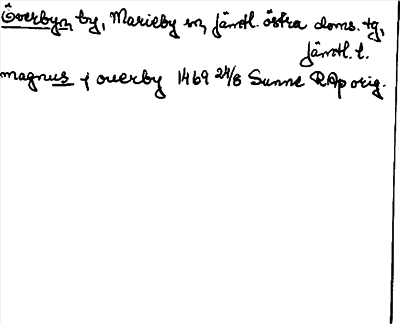 Överbyn, by, Marieby sn, Jämtl. östra doms. tg,
Jämtl. l.
magnus j ouerby 1469 24/8 Sunne RAp orig.